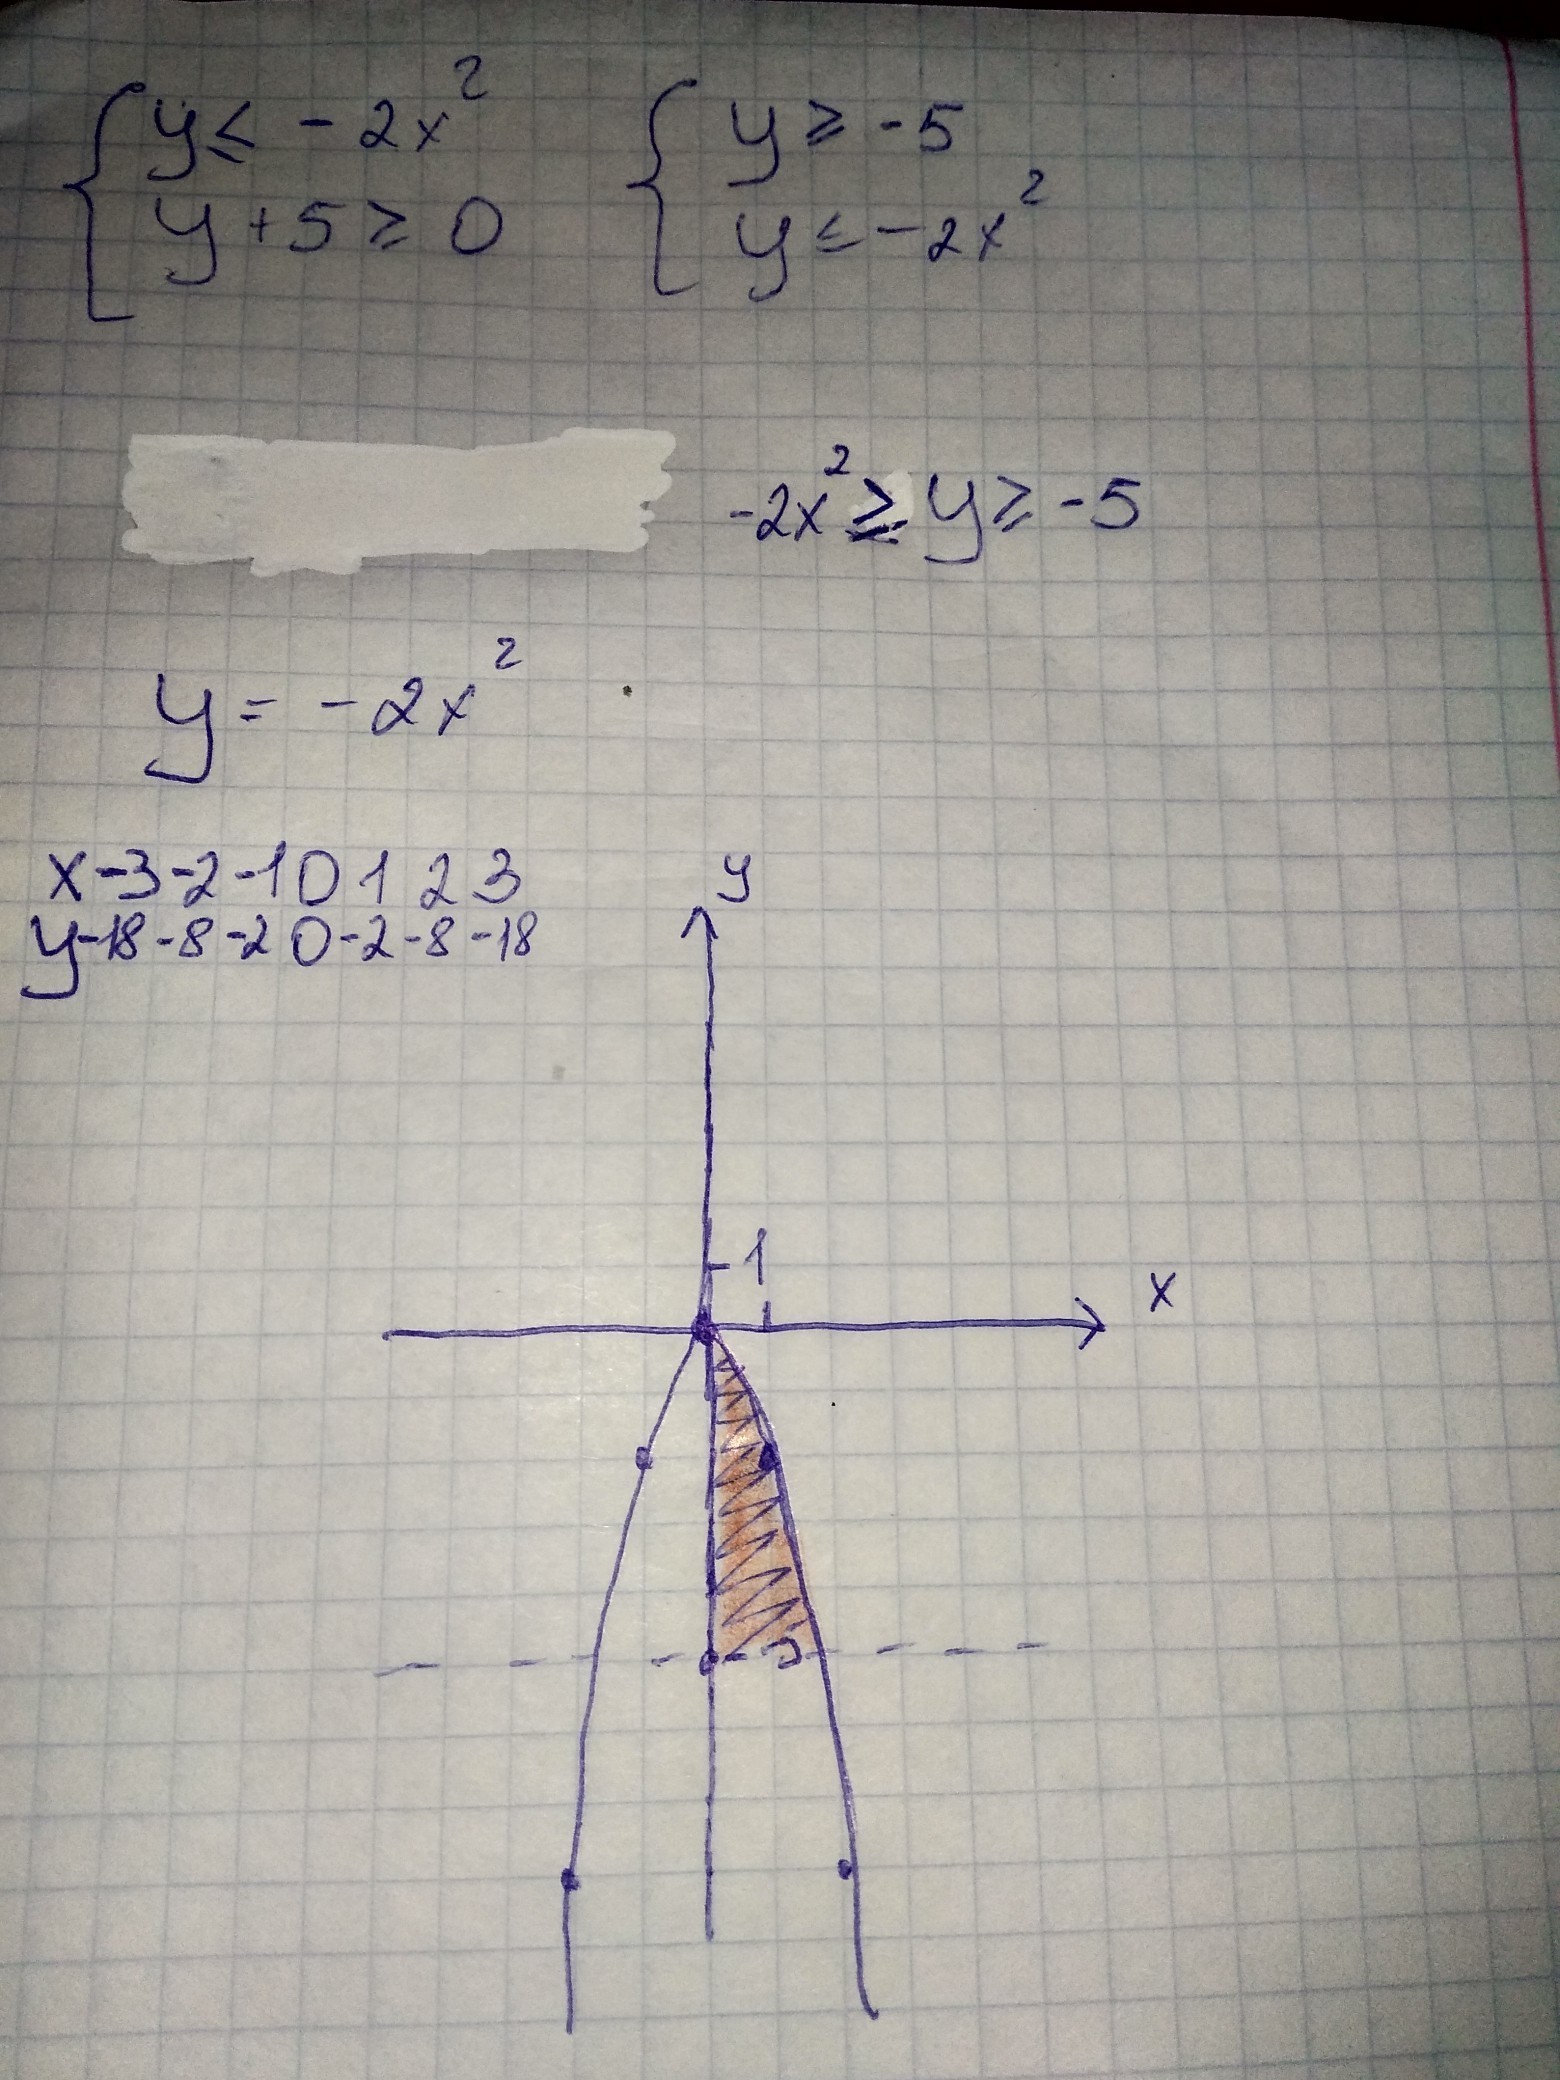 { y ≤ -2x² { y ≥ -5
y + 5 ≥ 0 y ≤ -2x²
-2x² ≥ y ≥ -5
y = -2x²
x -3 -2 -1 0 1 2 3
y -18 -8 -2 0 -2 -8 -18
y
1
x
-5